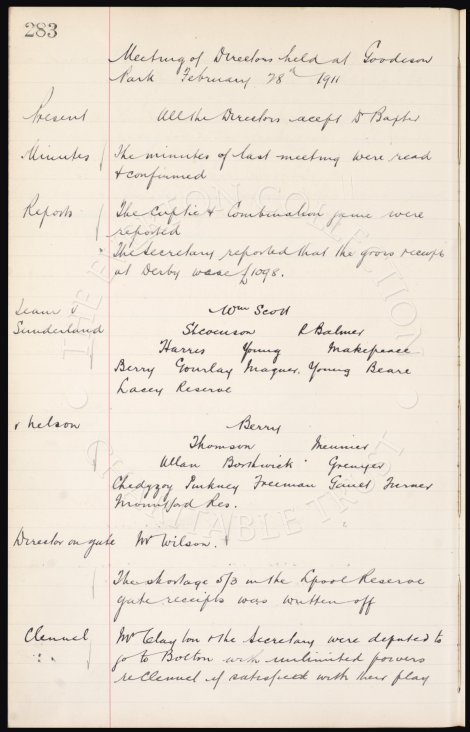 283
Meeting of Directors held at Goodison
Park February 28th 1911
Present All the Directors accept Dr Baxter
Minutes The minutes of last meeting were read
& confirmed
Reports The Cuptie & Combination game were
reported
The Secretary reported that the gross receipts
at Derby were £1098.
Team v Wm Scott
Sunderland Stevenson R Balmer
Harris Young Makepeace
Berry Gourlay Magner. Young Beare
Lacey Reserve
v Nelson Berry
Thomson Meunier
Allan Borthwick Grenyer
Chedgzoy Pinkney Freeman Gault Turner
Mountford Res.
Director on gate Mr Wilson.
The shortage 5/3 in the Lpool Reserve
gate receipts was written off
Clennel Mr Clayton & the Secretary were deputed to
go to Bolton with unlimited powers
re Clennel if satisfied with their play
THE EVERTON COLLECTION
CHARITABLE TRUST